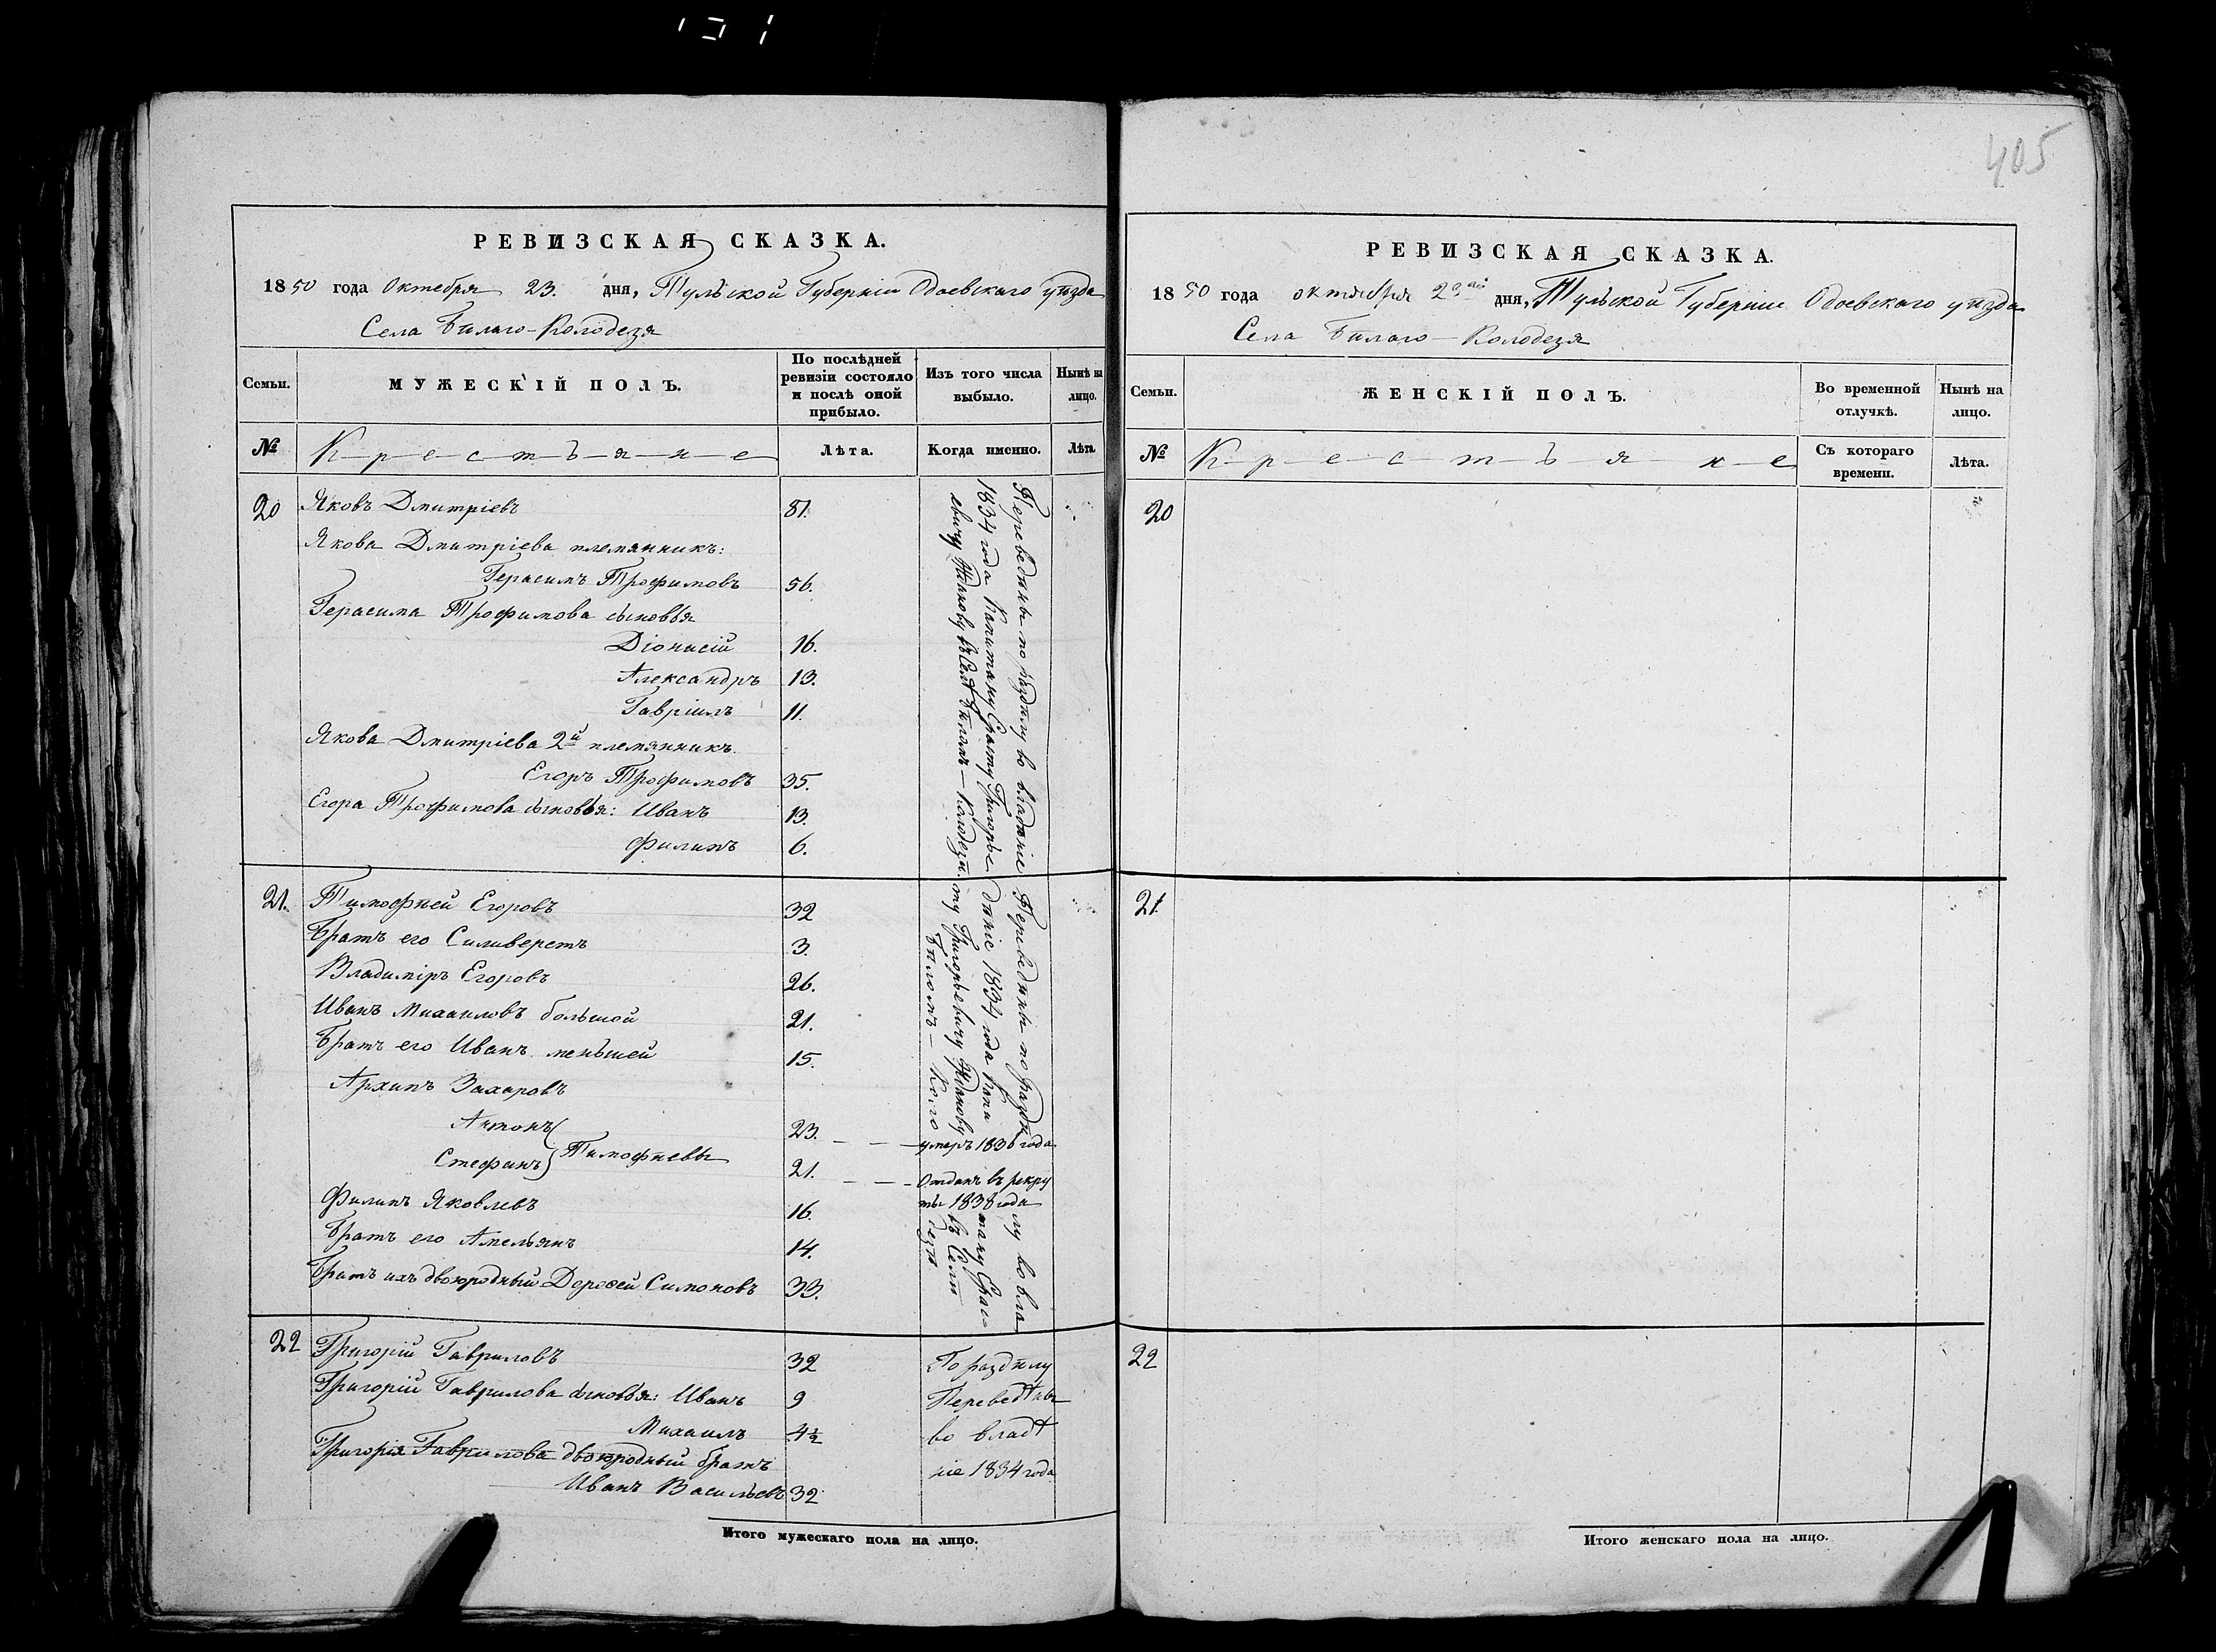 405
РЕВИЗСКАЯ СКАЗКА.
1850 года Октября 23. дня, Тульской Губерніи Одоевскаго уѣзда
Села Бѣлаго-Колодезя
Семьи.
МУЖЕСКІЙ ПОЛЪ.
По послѣдней ревизіи состояло и послѣ оной прибыло.
Изъ того числа выбыло.
Нынѣ на лицо.
№
Крестьяне
Лѣта.
Когда именно.
Лѣта.
20 Яковъ Дмитріевъ 81.
Якова Дмитріева племянникъ:
Герасимъ Трофимовъ 56.
Герасима Трофимова сыновья
Діонисій 16.
Александръ 13.
Гавріилъ 11.
Якова Дмитріева 2й племянникъ.
Егоръ Трофимовъ 35.
Егора Трофимова сыновья: Иванъ 13.
Филипъ 6.
Переведѣны по раздѣлу во владѣніе
1834 года Капитану Григорье-
евичу въ Селѣ Бѣломъ-Колодезѣ.
21. Тимофѣей Егоровъ 32
Братъ его Силиверстъ 3.
Владиміръ Егоровъ 26.
Иванъ Михаиловъ большой 21.
Братъ его Иванъ меньшей 15.
Архипъ Захаровъ
Антонъ 23. умеръ 1836 года
Стефанъ } Тимофѣевы 21. Отданъ въ рекру
ты 1838 года
Филипъ Яковлевъ 16.
Братъ его Амельянъ 14.
Братъ ихъ двоюродный Дорофей Симоновъ 33.
Переведѣны по раздѣ
лу во вла
дѣніе 1834 года Капи
тану
ту Григорьевичу
въ Селѣ
Бѣломъ-Коло
дезѣ
22 Григорій Гавриловъ 32 По раздѣлу
Григорій Гаврилова сыновья: Иванъ 9 Переведѣны
Михаилъ 4½ во владѣ
Григорія Гаврилова двоюродный братъ ніе 1834 года
Иванъ Васильевъ 32
Итого мужескаго пола на лицо.
РЕВИЗСКАЯ СКАЗКА.
1850 года октября 23го дня, Тульской Губерніи Одоевскаго уѣзда
Села Бѣлаго-Колодезя
Семьи.
ЖЕНСКІЙ ПОЛЪ.
Во временной отлучкѣ.
Нынѣ на лицо.
№
Крестьяне
Съ котораго времени.
Лѣта.
20
21.
22
Итого женскаго пола на лицо.